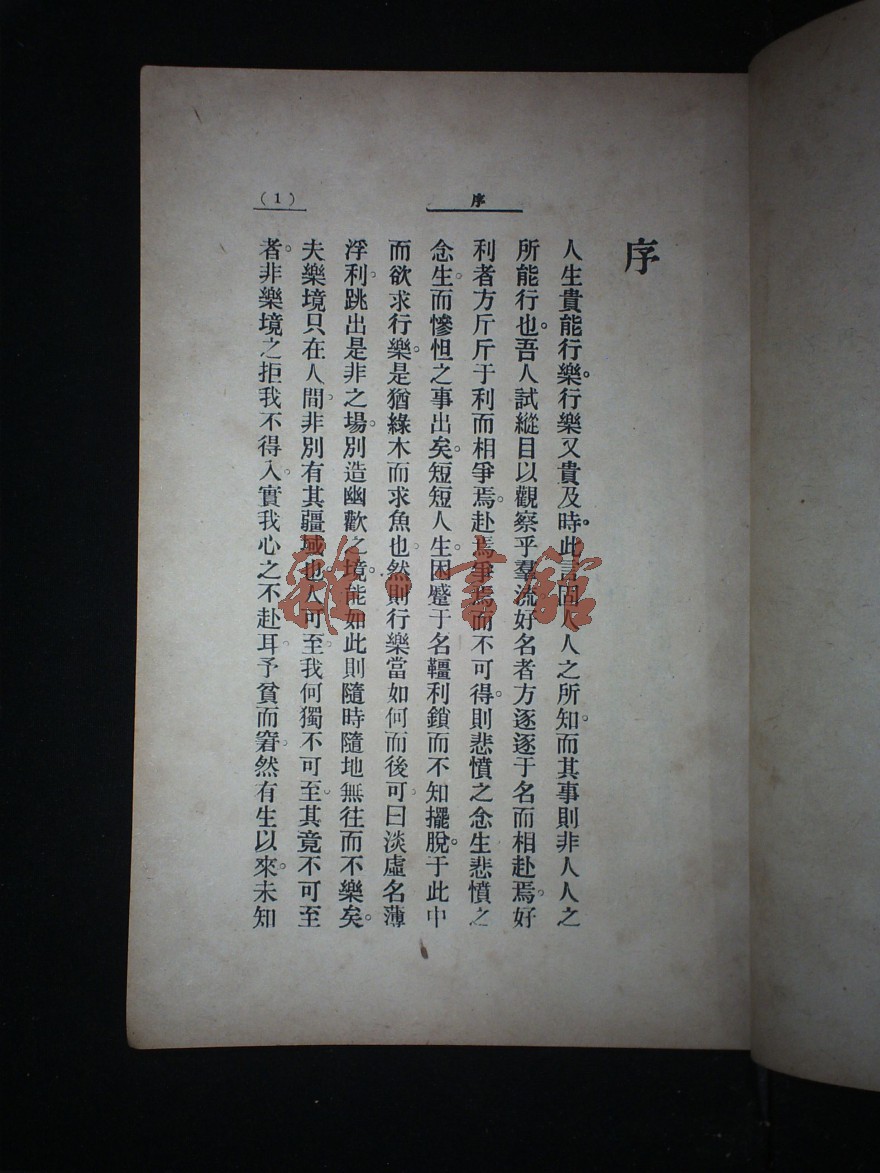 序
（1）
序
人生貴能行樂。行樂又貴及時。此言固人人之所知。而其事則非人人之
所能行也。吾人試縱目以觀察乎羣流好名者方逐逐于名而相赴焉。好
利者方斤斤于利而相爭焉。赴焉爭焉而不可得。則悲憤之念生悲憤之
念生。而慘怛之事出矣。短短人生。因蹙于名韁利鎖而不知擺脫。于此中
而欲求行樂。是猶緣木而求魚也。然則行樂當如何而後可。曰淡虛名薄
浮利。跳出是非之場。別造幽歡之境。能如此則隨時隨地無往而不樂矣。
夫樂境只在人間。非別有其疆域也。人可至。我何獨不可至。其竟不可至
者。非樂境之拒我不得入。實我心之不赴耳。予貧而窘。然有生以來。未知
雜·書館